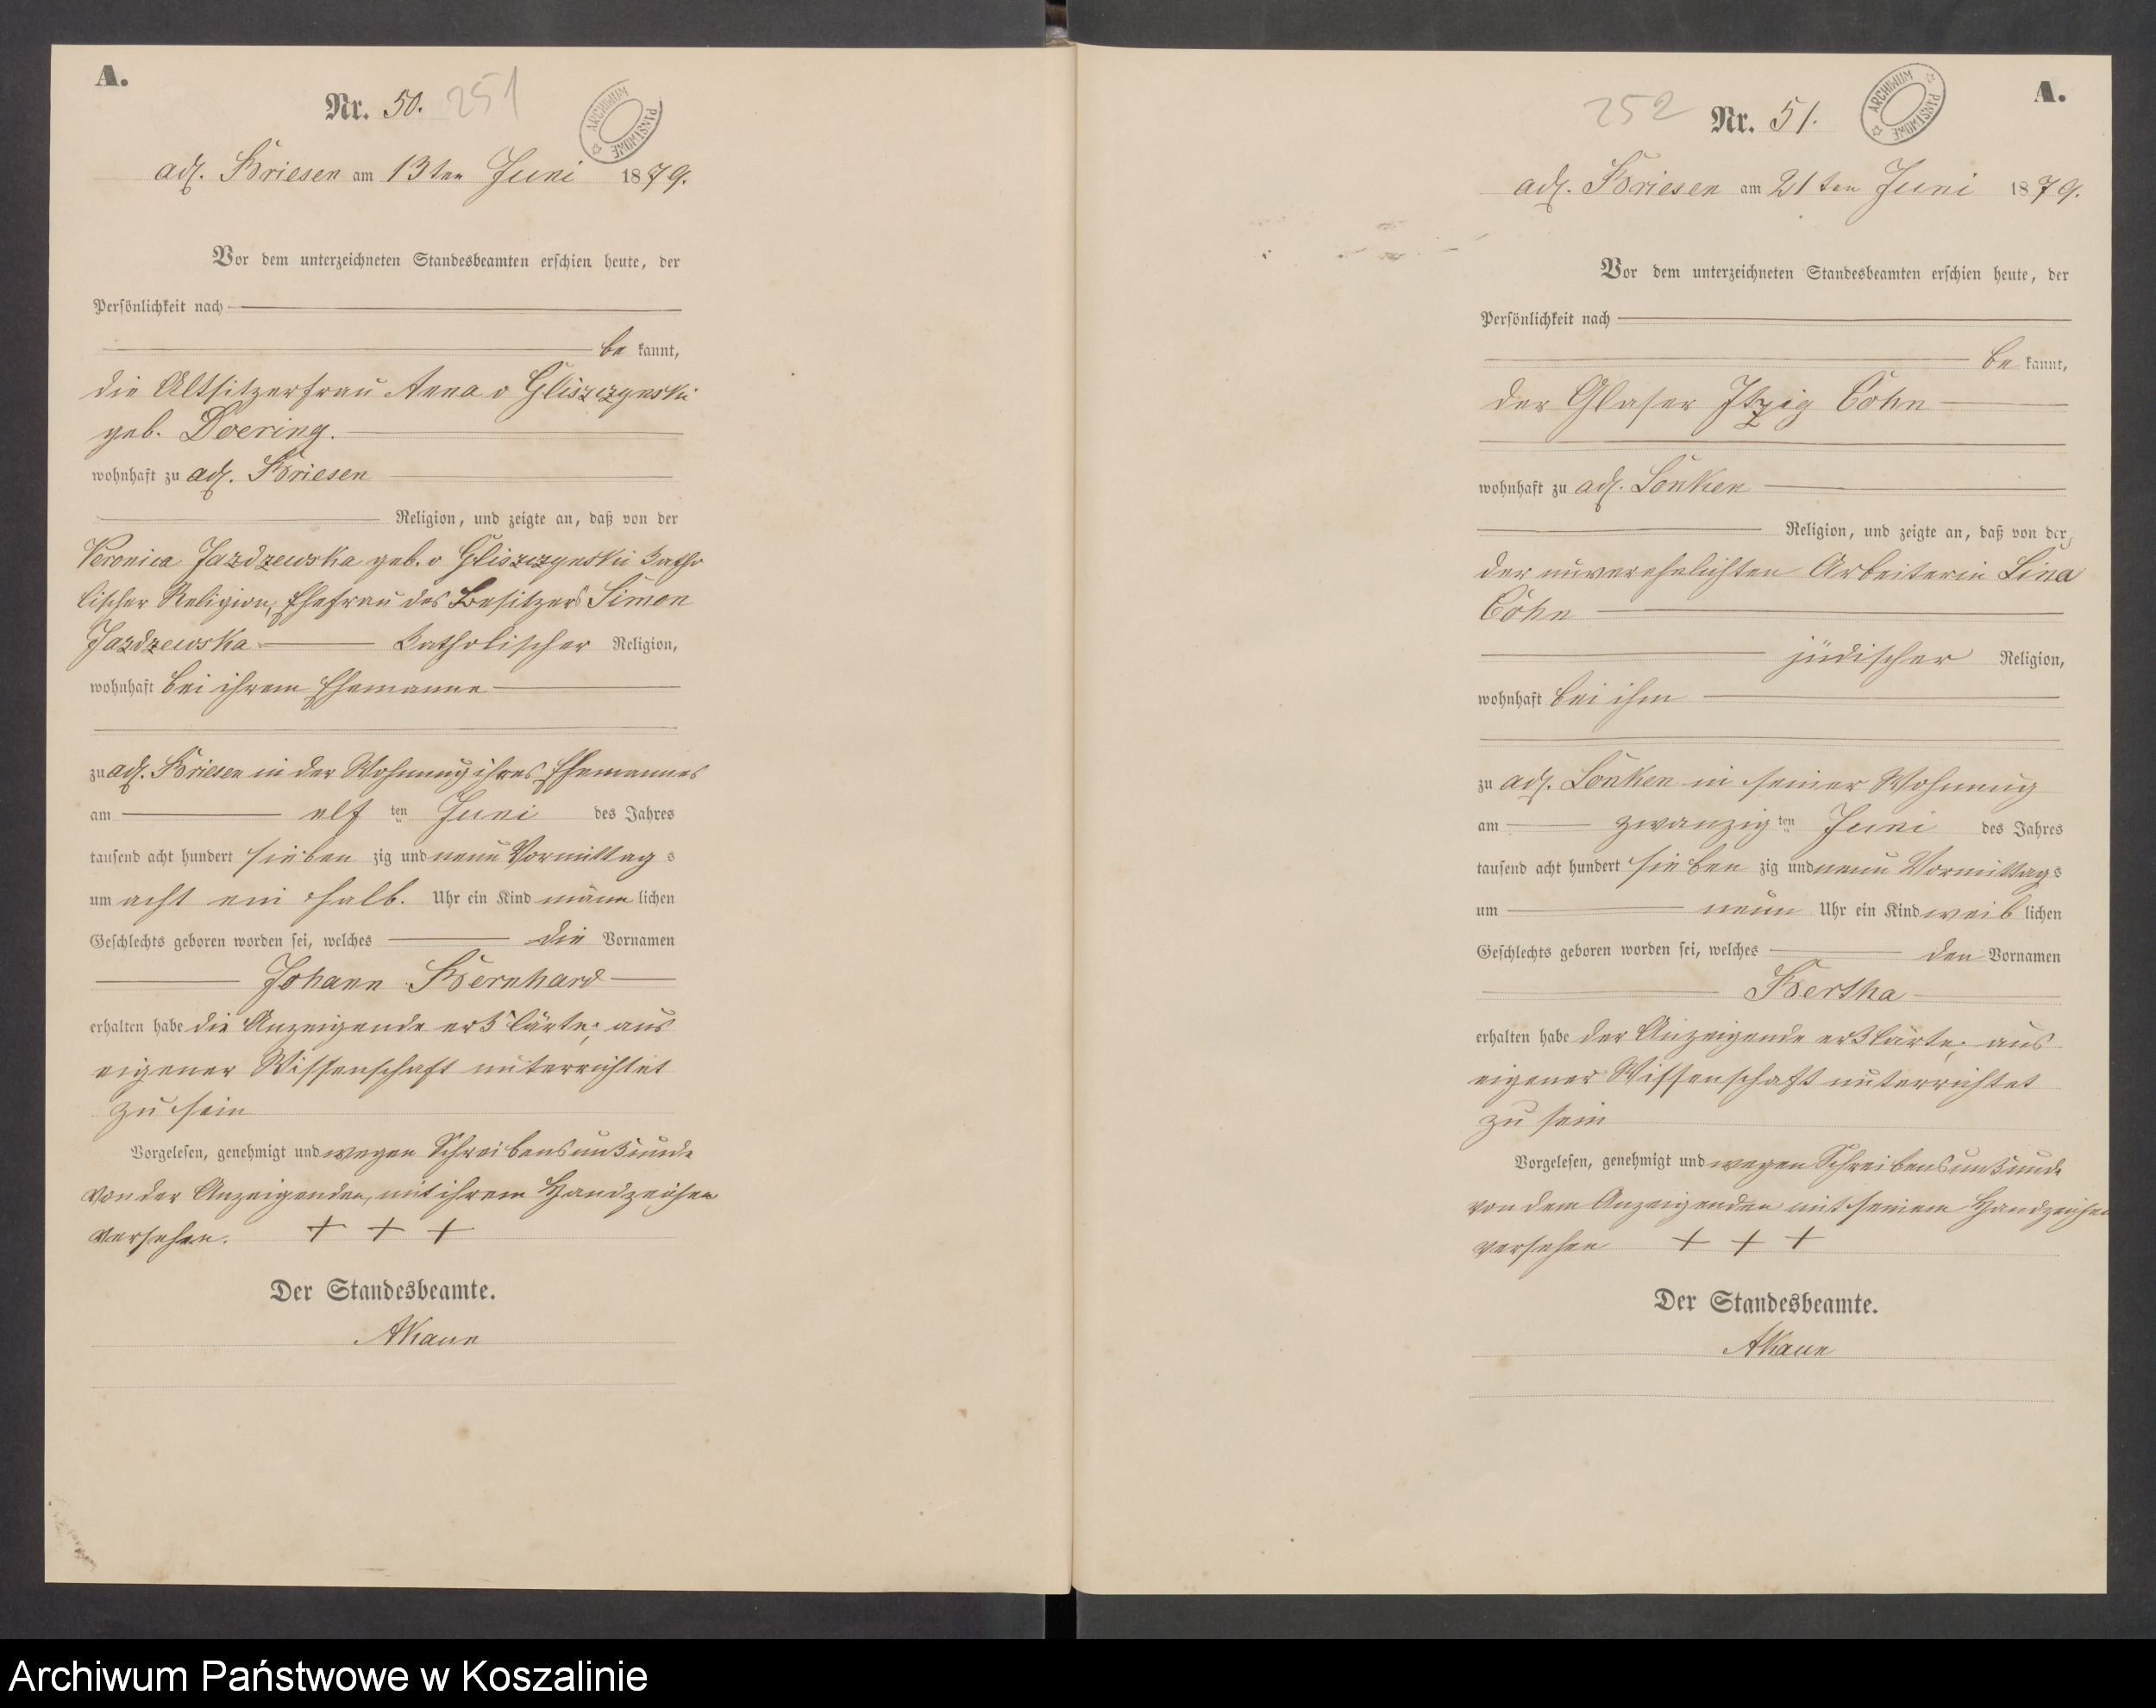 A.
Nr. 50. 251
ARCHIWUM PAŃSTWOWE
adl. Briesen am 13ten Juni 1879.
Vor dem unterzeichneten Standesbeamten erschien heute, der
Persönlichkeit nach
be kannt,
die Altsitzerfrau Anna v Gliszczynski
geb. Doering.
wohnhaft zu adl. Briesen
Religion, und zeigte an, daß von der
Veronica Jazdzewska geb. v Gliszczynski Katho
lischer Religion, Ehefrau des Besitzers Simon
Jazdzewska Katholischer Religion,
wohnhaft bei ihrem Ehemanne
zu adl. Briesen in der Wohnung ihres Ehemannes
am elf ten Juni des Jahres
tausend acht hundert sieben zig und neun Vormittag s
um acht ein halb. Uhr ein Kind männ lichen
Geschlechts geboren worden sei, welches die Vornamen
Johann Bernhard
erhalten habe die Anzeigende erklärte, aus
eigener Wissenschaft unterrichtet
zu sein
Vorgelesen, genehmigt und wegen Schreibensunkunde
von der Anzeigenden, mit ihrem Handzeichen
versehen. + + +
Der Standesbeamte.
AKaun
A.
252 Nr. 51.
ARCHIWUM PAŃSTWOWE
adl. Briesen am 21ten Juni 1879.
Vor dem unterzeichneten Standesbeamten erschien heute, der
Persönlichkeit nach
be kannt,
der Glaser Itzig Cohn
wohnhaft zu adl. Lonken
Religion, und zeigte an, daß von der,
der unverehelichten Arbeiterin Lina
Cohn
jüdischer Religion,
wohnhaft bei ihm
zu adl. Lonken in seiner Wohnung
am zwanzig ten Juni des Jahres
tausend acht hundert sieben zig und neun Vormittag s
um neun Uhr ein Kind weib lichen
Geschlechts geboren worden sei, welches den Vornamen
Bertha
erhalten habe der Anzeigende erklärte, aus
eigener Wissenschaft unterrichtet
zu sein
Vorgelesen, genehmigt und wegen Schreibensunkunde
von dem Anzeigenden mit seinem Handzeichen
versehen + + +
Der Standesbeamte.
AKaun
Archiwum Państwowe w Koszalinie